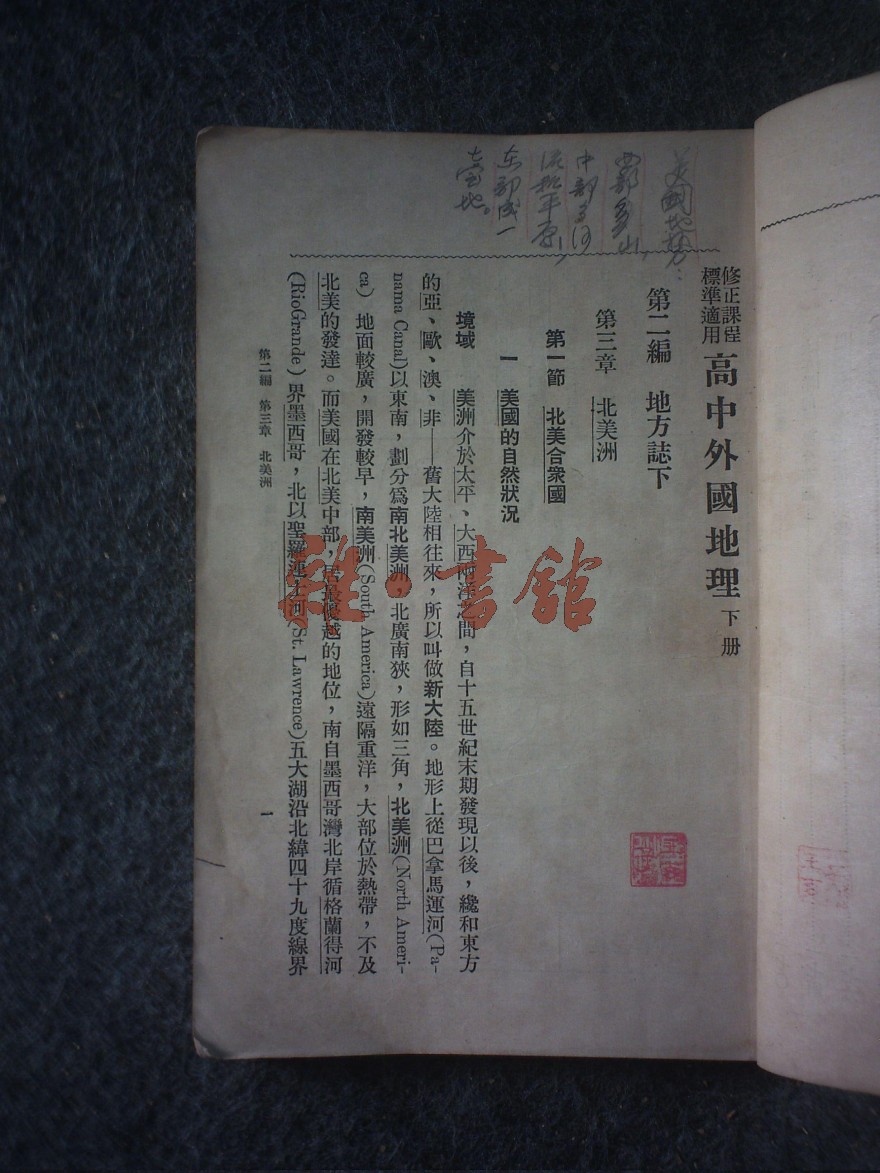 美國地勢：
西部多山，
中部多河
流較平原，
東部成一
臺地。
修正課程
標準適用
高中外國地理 下册
第二編 地方誌下
第三章 北美洲
第一節 北美合衆國
一 美國的自然狀況
境域 美洲介於太平、大西兩洋之間，自十五世紀末期發現以後，纔和東方
的亞、歐、澳、非——舊大陸相往來，所以叫做新大陸。地形上從巴拿馬運河(Pa-
nama Canal)以東南，劃分爲南北美洲，北廣南狹，形如三角，北美洲(North Ameri-
ca) 地面較廣，開發較早，南美洲(South America)遠隔重洋，大部位於熱帶，不及
北美的發達。而美國在北美中部，居最優越的地位，南自墨西哥灣北岸循格蘭得河
(RioGrande)界墨西哥，北以聖羅連士河(St. Lawrence)五大湖沿北緯四十九度線界
第二編 第三章 北美洲
一
雜·書館